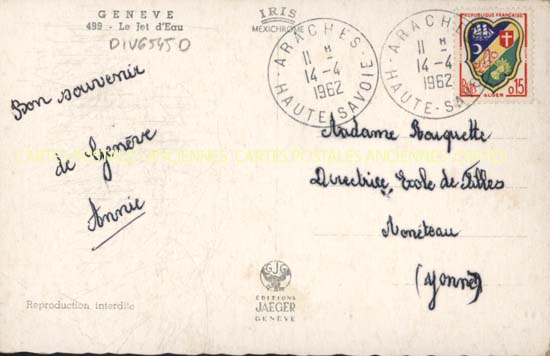 GENEVE
499 - Le Jet d'Eau
DIV6545D
IRIS
MEXICHROME
ARACHES
11 H
14-4
1962
HAUTE-SAVOIE
ARACHES
11 H
14-4
1962
HAUTE-SA
REPUBLIQUE FRANÇAISE
ALGER
0,15
Bon souvenir
de Genève
Annie
CARTES POSTALES ANCIENNES CARTES POSTALES ANCIENNES CARTES
Madame Rouquette
Directrice, Ecole de Filles
Monéteau
(Yonne)
Reproduction interdite
GJG
EDITIONS
JAEGER
GENEVE